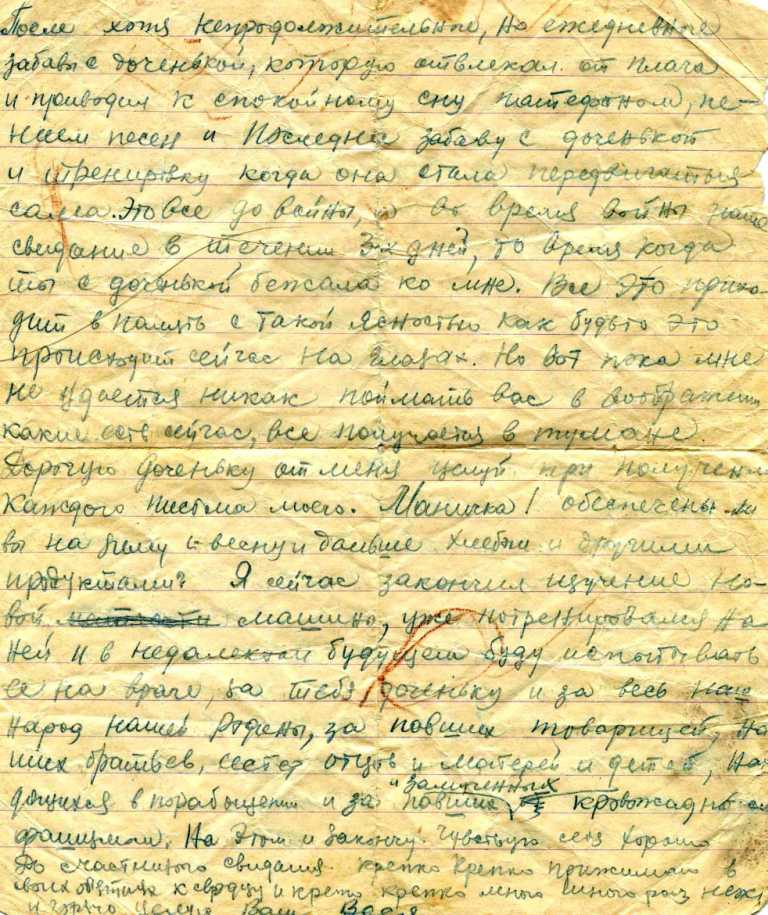 После хотя непродолжительные, но ежедневные
забавы с доченькой, которую отвлекал от плача
и приводил к спокойному сну патефоном, пе-
нием песен и Последню забаву с доченькой
и тренировку когда она стала передвигаться
сама. Это все до войны, а во время войны наше
свидание в течении 3-х дней, то время когда
ты с доченькой бежала ко мне. Все это прихо-
дит в память с такой ясностью как будьто это
происходит сейчас на глазах. Но вот пока мне
не удается никак поймать вас в воображении
какие есть сейчас, все получается в тумане.
Дорогую доченьку от меня целуй при получении
каждого письма моего. Маничка! обеспечены ли
вы на зиму и весну и дальше хлебом и другими
продуктами? Я сейчас закончил изучение но-
вой машины, уже потренировался на
ней и в недалеком будущем буду испытывать
ее на враге, за тебя доченьку и за весь наш
народ нашей Родины, за павших товарищей, на
ших братьев, сестер отцов и матерей и детей, нахо
дящихся в порабощении и за павших
и замученных
кровожадным
фашизмом. На этом и закончу. Чувствую себя хорошо
До счастливого свидания. крепко крепко прижимаю в
своих объятиях к сердцу и крепко крепко много много раз нежно
и горячо целую Ваш Вася